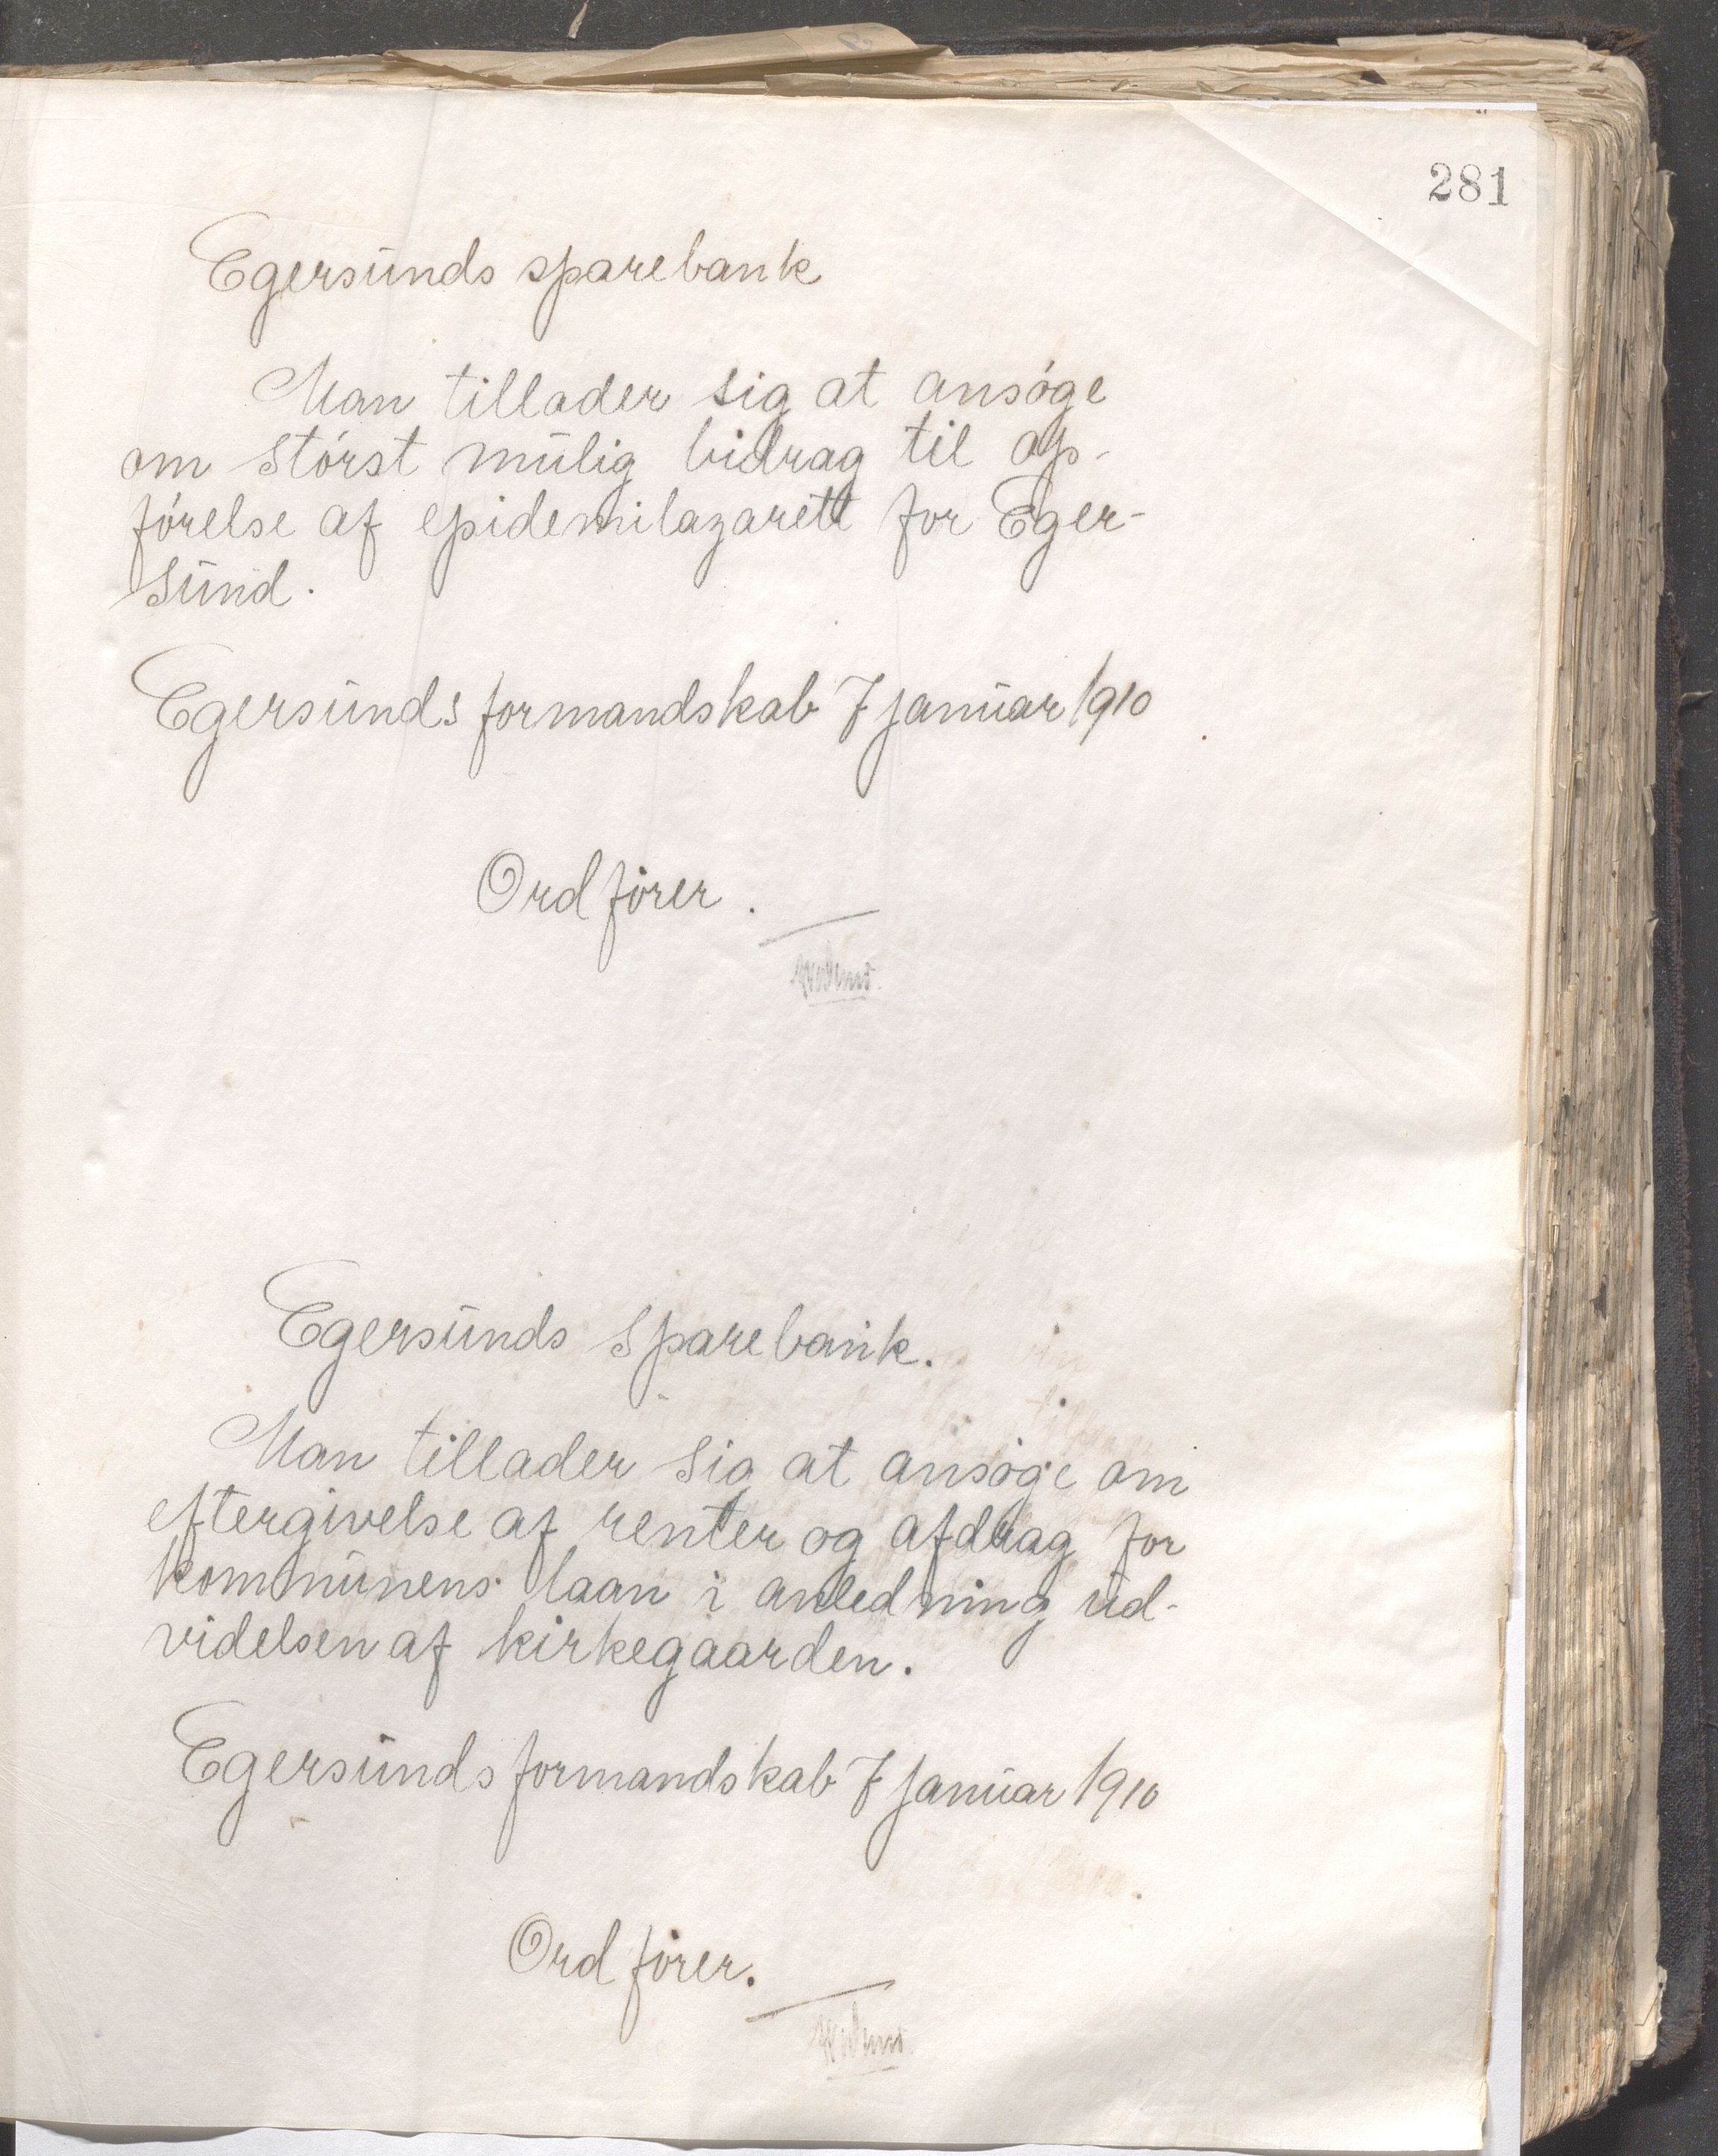 281
Egersunds sparebank
Man tillader sig at ansøge
om størst mulig bidrag til op-
førelse af epidemilazarett for Eger-
sund.
Egersunds formandskab 7 januar 1910
Ordfører.
Egersunds sparebank.
Man tillader sig at ansøge om
eftergivelse af renter og afdrag for
kommunens laan i anledning ud-
videlsen af kirkegaarden.
Egersunds formandskab 7 januar 1910
Ordfører.